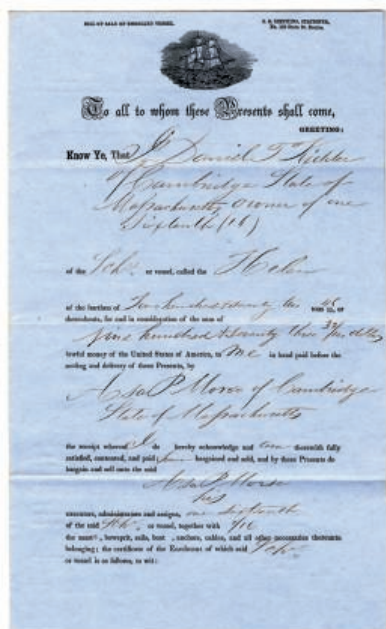 BILL OF SALE OF ENROLLED VESSEL.
To all to whom these Presents shall come,
GREETING:
Know Ye, That I Daniel T
of Cambridge State of
Massachusetts owner of one
Sixteenth (16)
of the Sch. or vessel, called the Helen
of the burthen of hundred seventy
thereabouts, for and in consideration of the sum of
Nine hundred & seventy three
lawful money of the United States of America, to Me in hand paid before the
sealing and delivery of these Presents, by
Asa P Morse of Cambridge
State of Massachusetts
the receipt whereof I do hereby acknowledge and am therewith fully
satisfied, contented, and paid; have bargained and sold, and by these Presents do
bargain and sell unto the said
Asa P Morse
his
executors, administrators and assigns, one sixteenth
of the said Sch. or vessel, together with 1/16
the mast, bowsprit, sails, boat, anchors, cables, and all other necessaries thereunto
belonging; the certificate of the Enrolment of which said Sch.
or vessel is as follows, to wit: